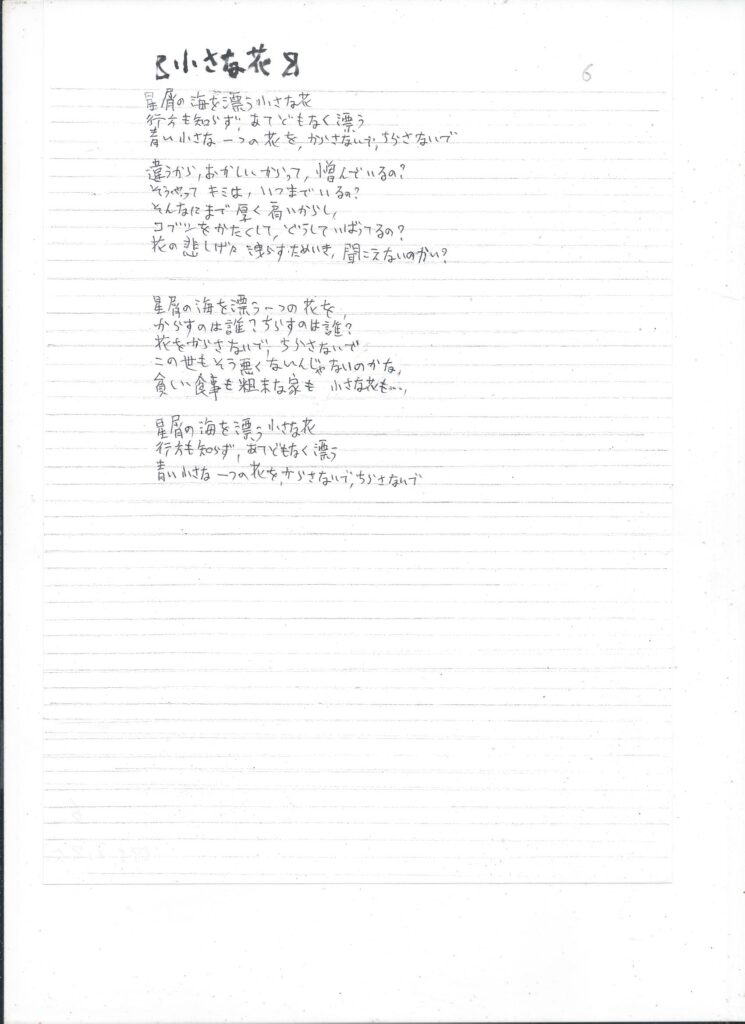 小さな花
6
星屑の海を漂う小さな花
行方も知らず,あてどもなく漂う
青い小さな一つの花を,からさないで,ちらさないで
違うから,おかしいからって,憎んでいるの?
そうやってキミは,いつまでいるの?
そんなにまで厚く高いからし,
コブシをかたくして,どうしていばってるの?
花の悲しげな洩らすためいき,聞こえないのかい?
星屑の海を漂う一つの花を,
からすのは誰?ちらすのは誰?
花をからさないで,ちらさないで
この世もそう悪くないんじゃないのかな,
貧しい食事も粗末な家も 小さな花も...,
星屑の海を漂う小さな花
行方も知らず,あてどもなく漂う
青い小さな一つの花を,からさないで,ちらさないで